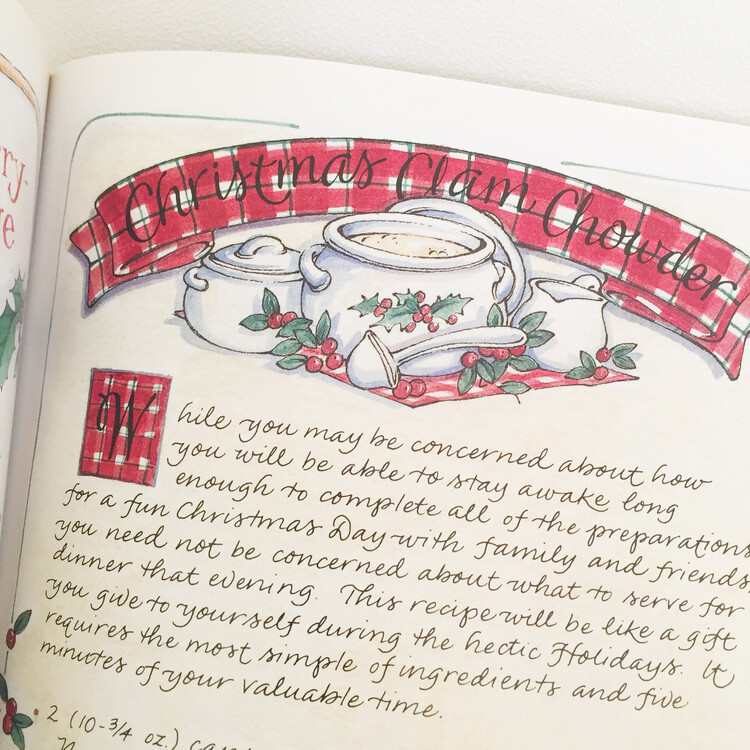 Christmas Clam Chowder
While you may be concerned about how
you will be able to stay awake long
enough to complete all of the preparations
for a fun Christmas Day with family and friends,
you need not be concerned about what to serve for
dinner that evening. This recipe will be like a gift
you give to yourself during the hectic Holidays. It
requires the most simple of ingredients and five
minutes of your valuable time.
2 (10-3/4 oz.)